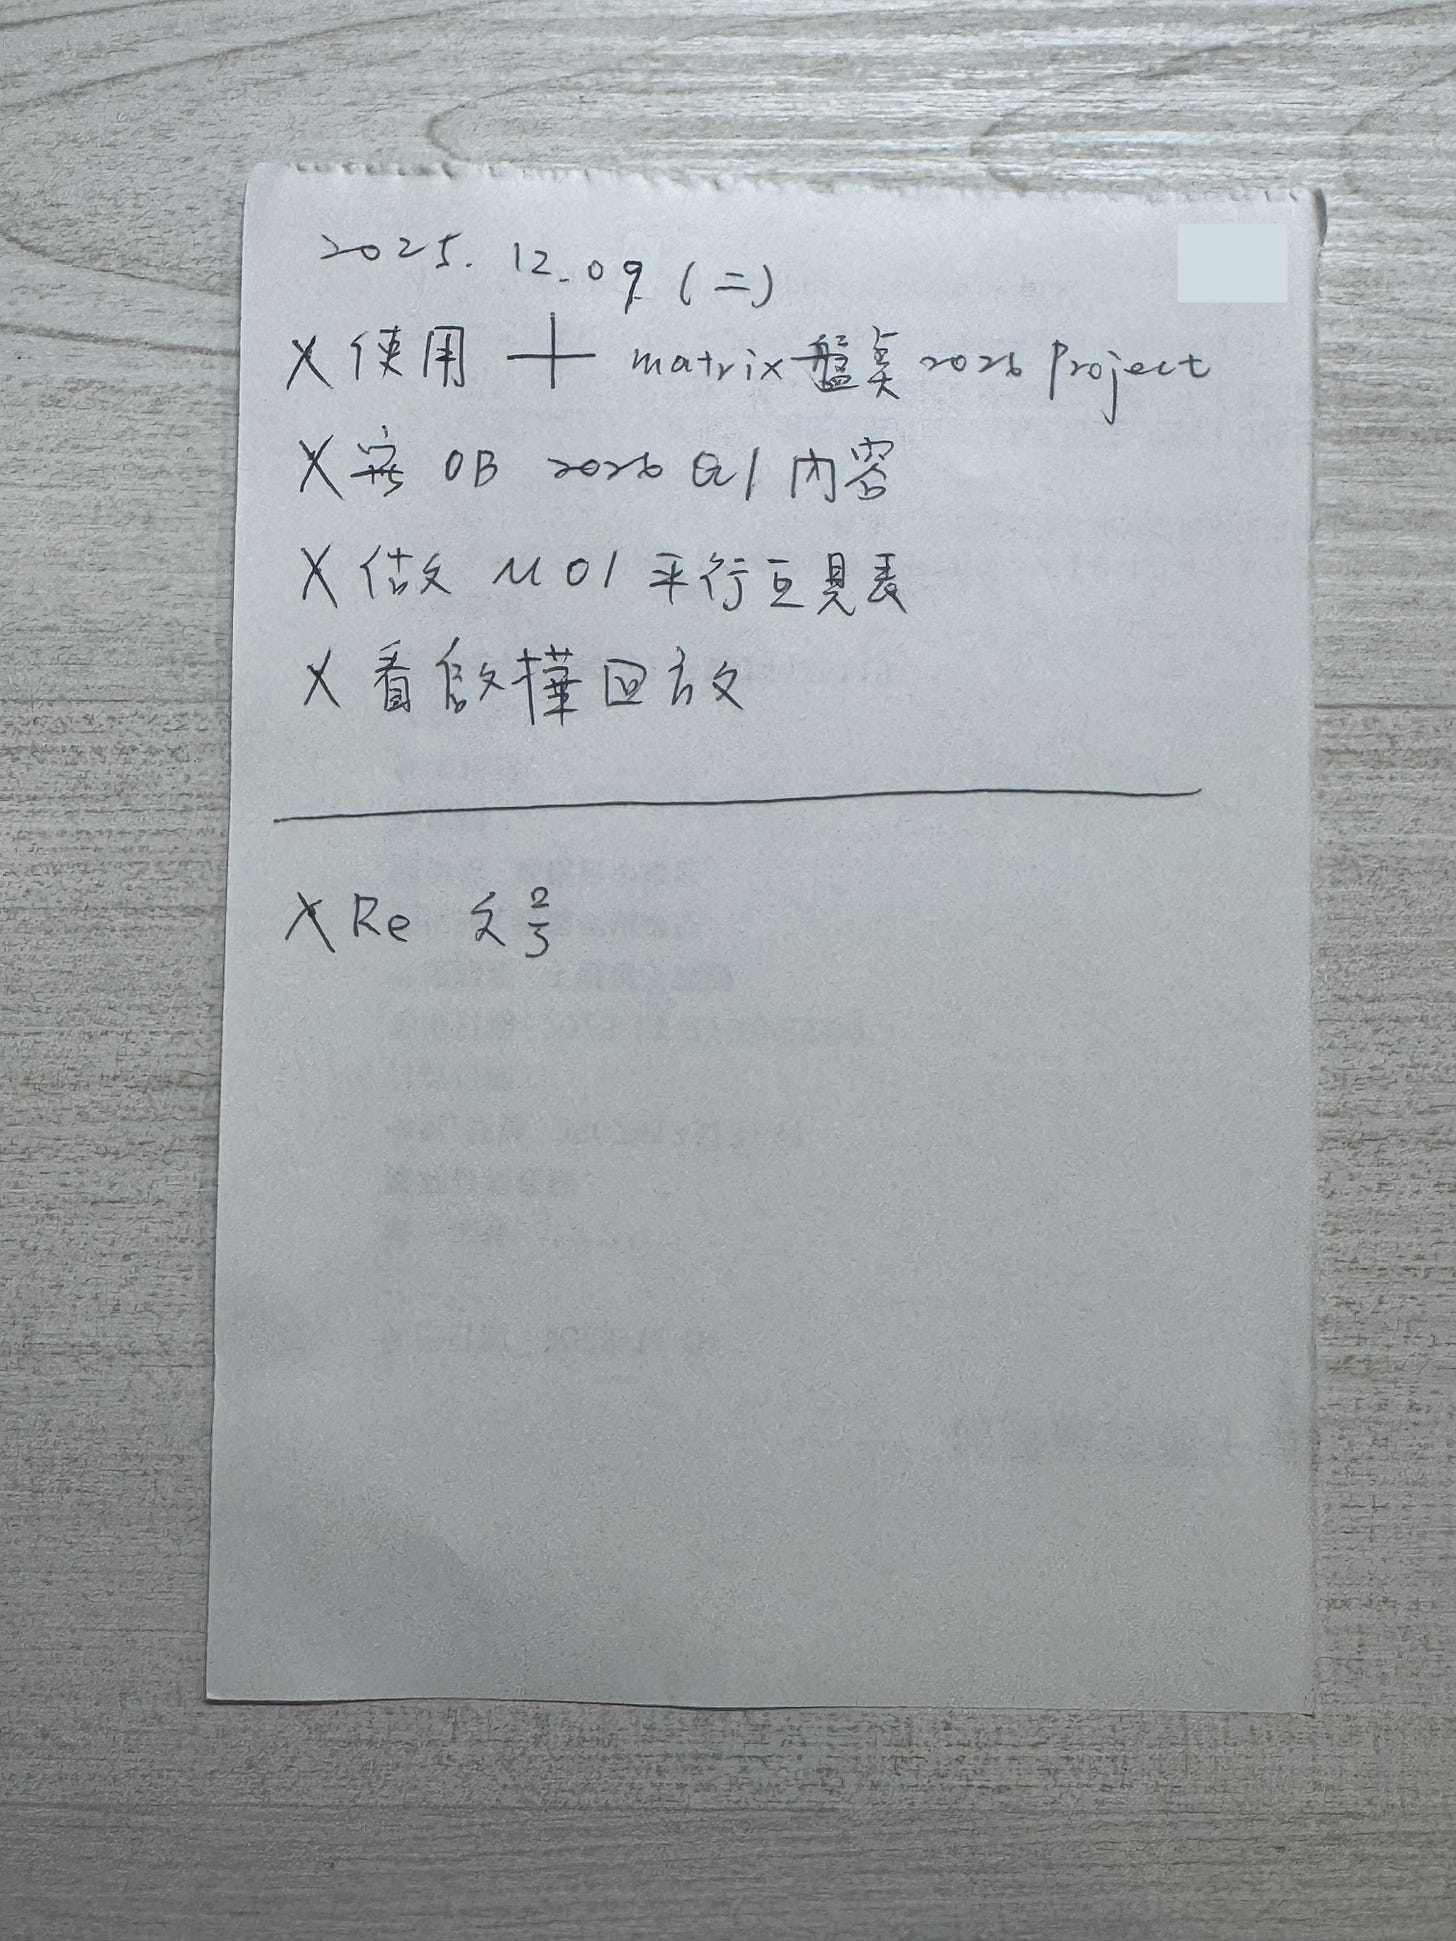 2025.12.09 (二)
X 使用 十 matrix 盤點 2026 Project
X 寫 OB 2026 Q1 內容
X 做 M01 平行互見表
X 看啟樺回放
X Re 文号